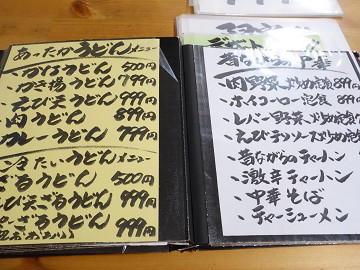 あったかうどんメニュー
・かけうどん 500円
・かき揚うどん 799円
・えび天うどん 999円
・肉うどん 899円
・カレーうどん 799円
冷たいうどんメニュー
ざるうどん 500円
えび天ざるうどん 999円
ざるうどん 999円
昔ながらの中華
・肉野菜炒め定食 899円
・ホイコーロー定食 899
・レバー野菜炒め定食
・えびチリソース炒め定食
・昔ながらのチャーハン
・激辛チャーハン
・中華そば
・チャーシューメン